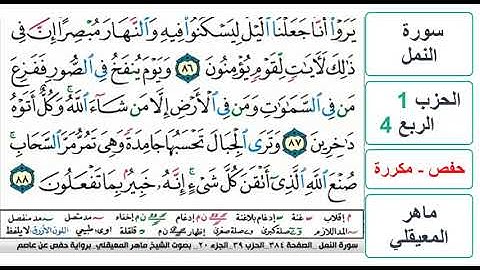 يَرَوْا۟ أَنَّا جَعَلْنَا ٱلَّيْلَ لِيَسْكُنُوا۟ فِيهِ وَٱلنَّهَارَ مُبْصِرًا ۚ إِنَّ فِى
ذَٰلِكَ لَـَٔايَـٰتٍ لِّقَوْمٍ يُؤْمِنُونَ ٨٦ وَيَوْمَ يُنفَخُ فِى ٱلصُّورِ فَفَزِعَ
مَن فِى ٱلسَّمَـٰوَٰتِ وَمَن فِى ٱلْأَرْضِ إِلَّا مَن شَآءَ ٱللَّهُ ۚ وَكُلٌّ أَتَوْهُ
دَٰخِرِينَ ٨٧ وَتَرَى ٱلْجِبَالَ تَحْسَبُهَا جَامِدَةً وَهِىَ تَمُرُّ مَرَّ ٱلسَّحَابِ ۚ
صُنْعَ ٱللَّهِ ٱلَّذِىٓ أَتْقَنَ كُلَّ شَىْءٍ ۚ إِنَّهُۥ خَبِيرٌۢ بِمَا تَفْعَلُونَ ٨٨
سورة
النمل
الحزب 1
الربع 4
حفص - مكررة
ماهر
المعيقلي
م إقلاب غنة إدغام بلاغنة إدغام ن م إخفاء مد متصل مد منفصل
المد اللازم صلة كبرى صلة صغرى
سورة النمل - الصفحة ٣٨٤ - الحزب ٣٩ - الجزء ٢٠ - بصوت الشيخ ماهر المعيقلي - برواية حفص عن عاصم